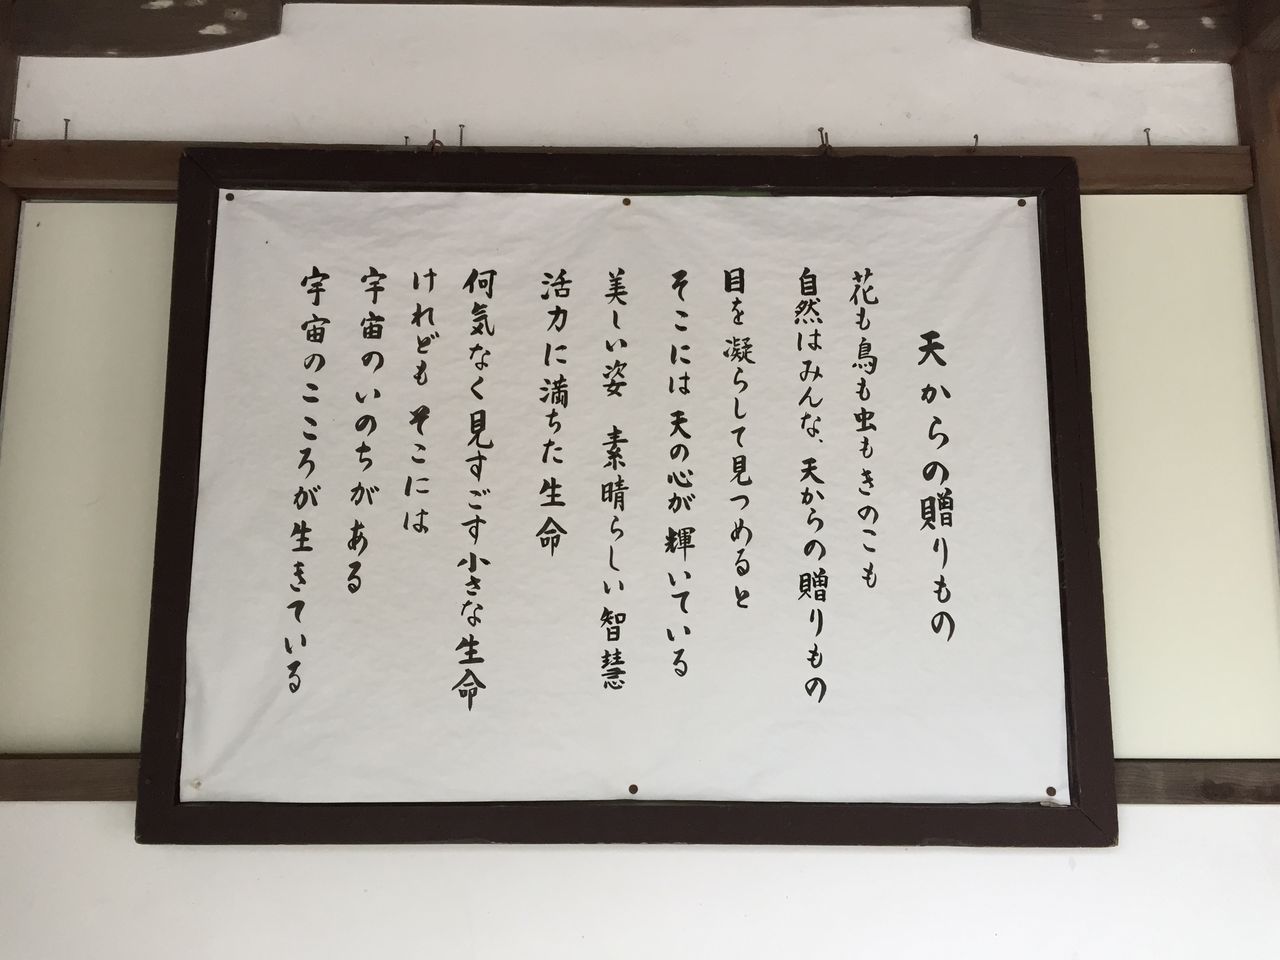 天からの贈りもの
花も鳥も虫もきのこも
自然はみんな、天からの贈りもの
目を凝らして見つめると
そこには天の心が輝いている
美しい姿　素晴らしい智慧
活力に満ちた生命
何気なく見すごす小さな生命
けれども そこには
宇宙のいのちがある
宇宙のこころが生きている